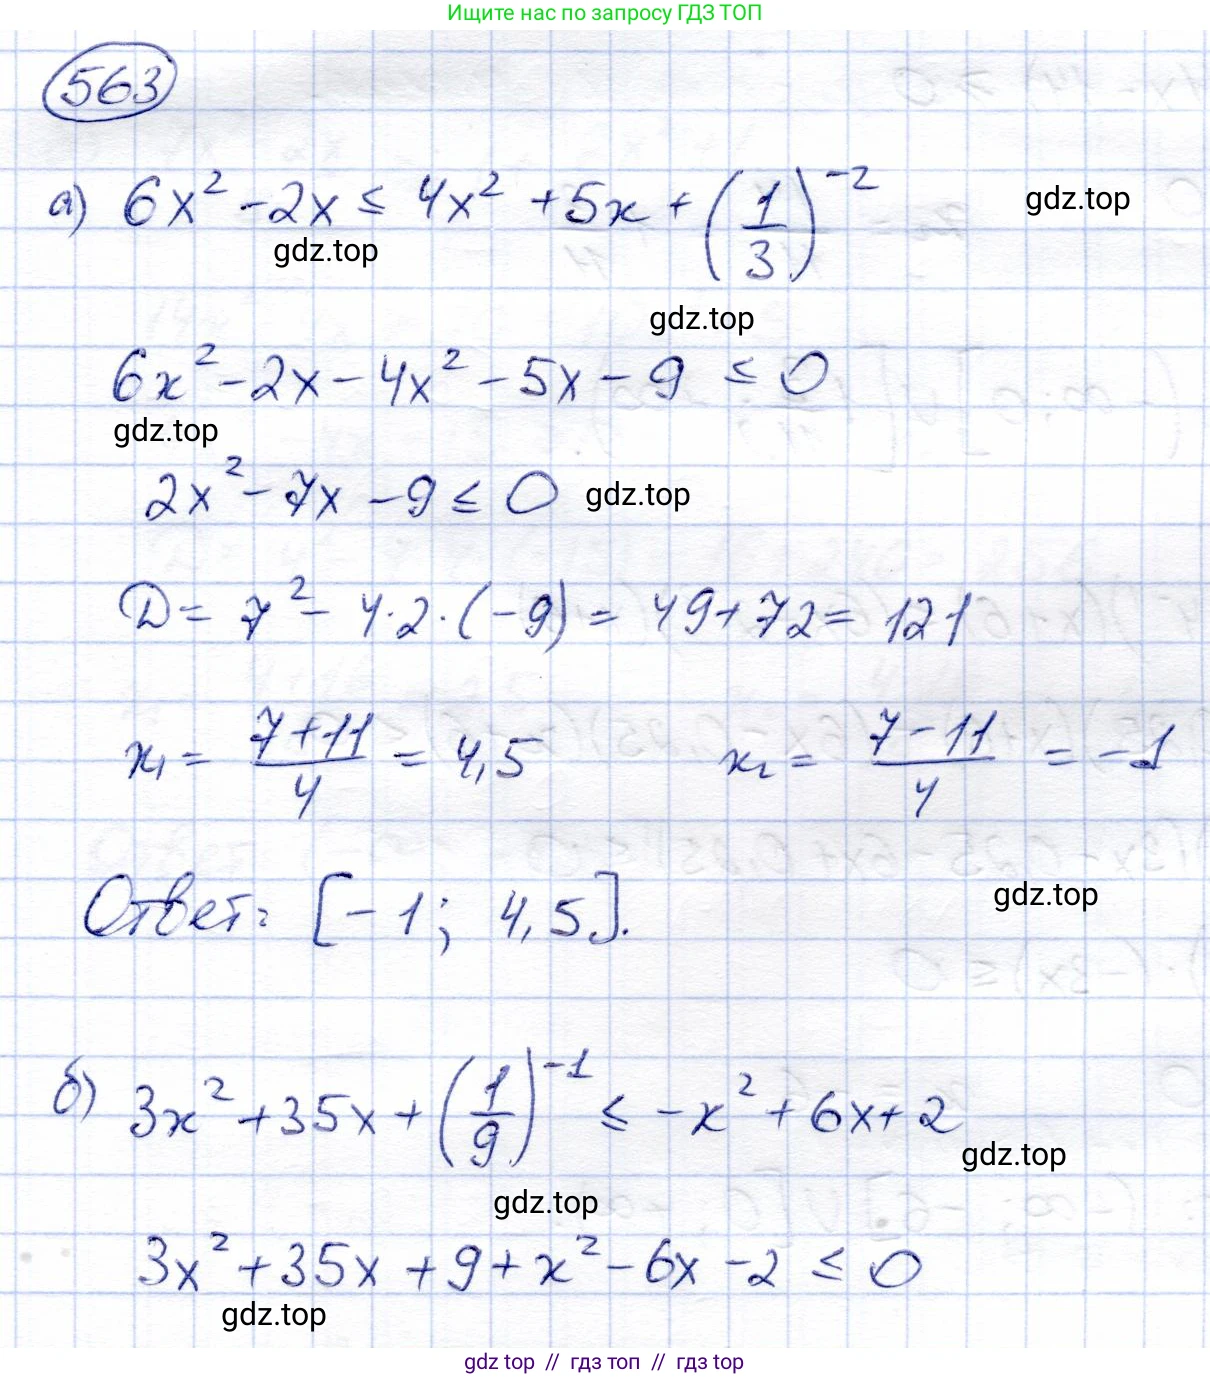 Ищите нас по запросу ГДЗ ТОП
563
а) 6x² - 2x ≤ 4x² + 5x + (1/3)⁻²
gdz.top
gdz.top
gdz.top
6x² - 2x - 4x² - 5x - 9 ≤ 0
gdz.top
2x² - 7x - 9 ≤ 0
gdz.top
D = 7² - 4·2·(-9) = 49 + 72 = 121
x₁ = (7+11)/4 = 4,5 x₂ = (7-11)/4 = -1
Ответ: [-1; 4,5].
gdz.top
б) 3x² + 35x + (1/9)⁻¹ ≤ -x² + 6x + 2
gdz.top
gdz.top
3x² + 35x + 9 + x² - 6x - 2 ≤ 0
gdz.top
gdz top // гдз топ // гдз top